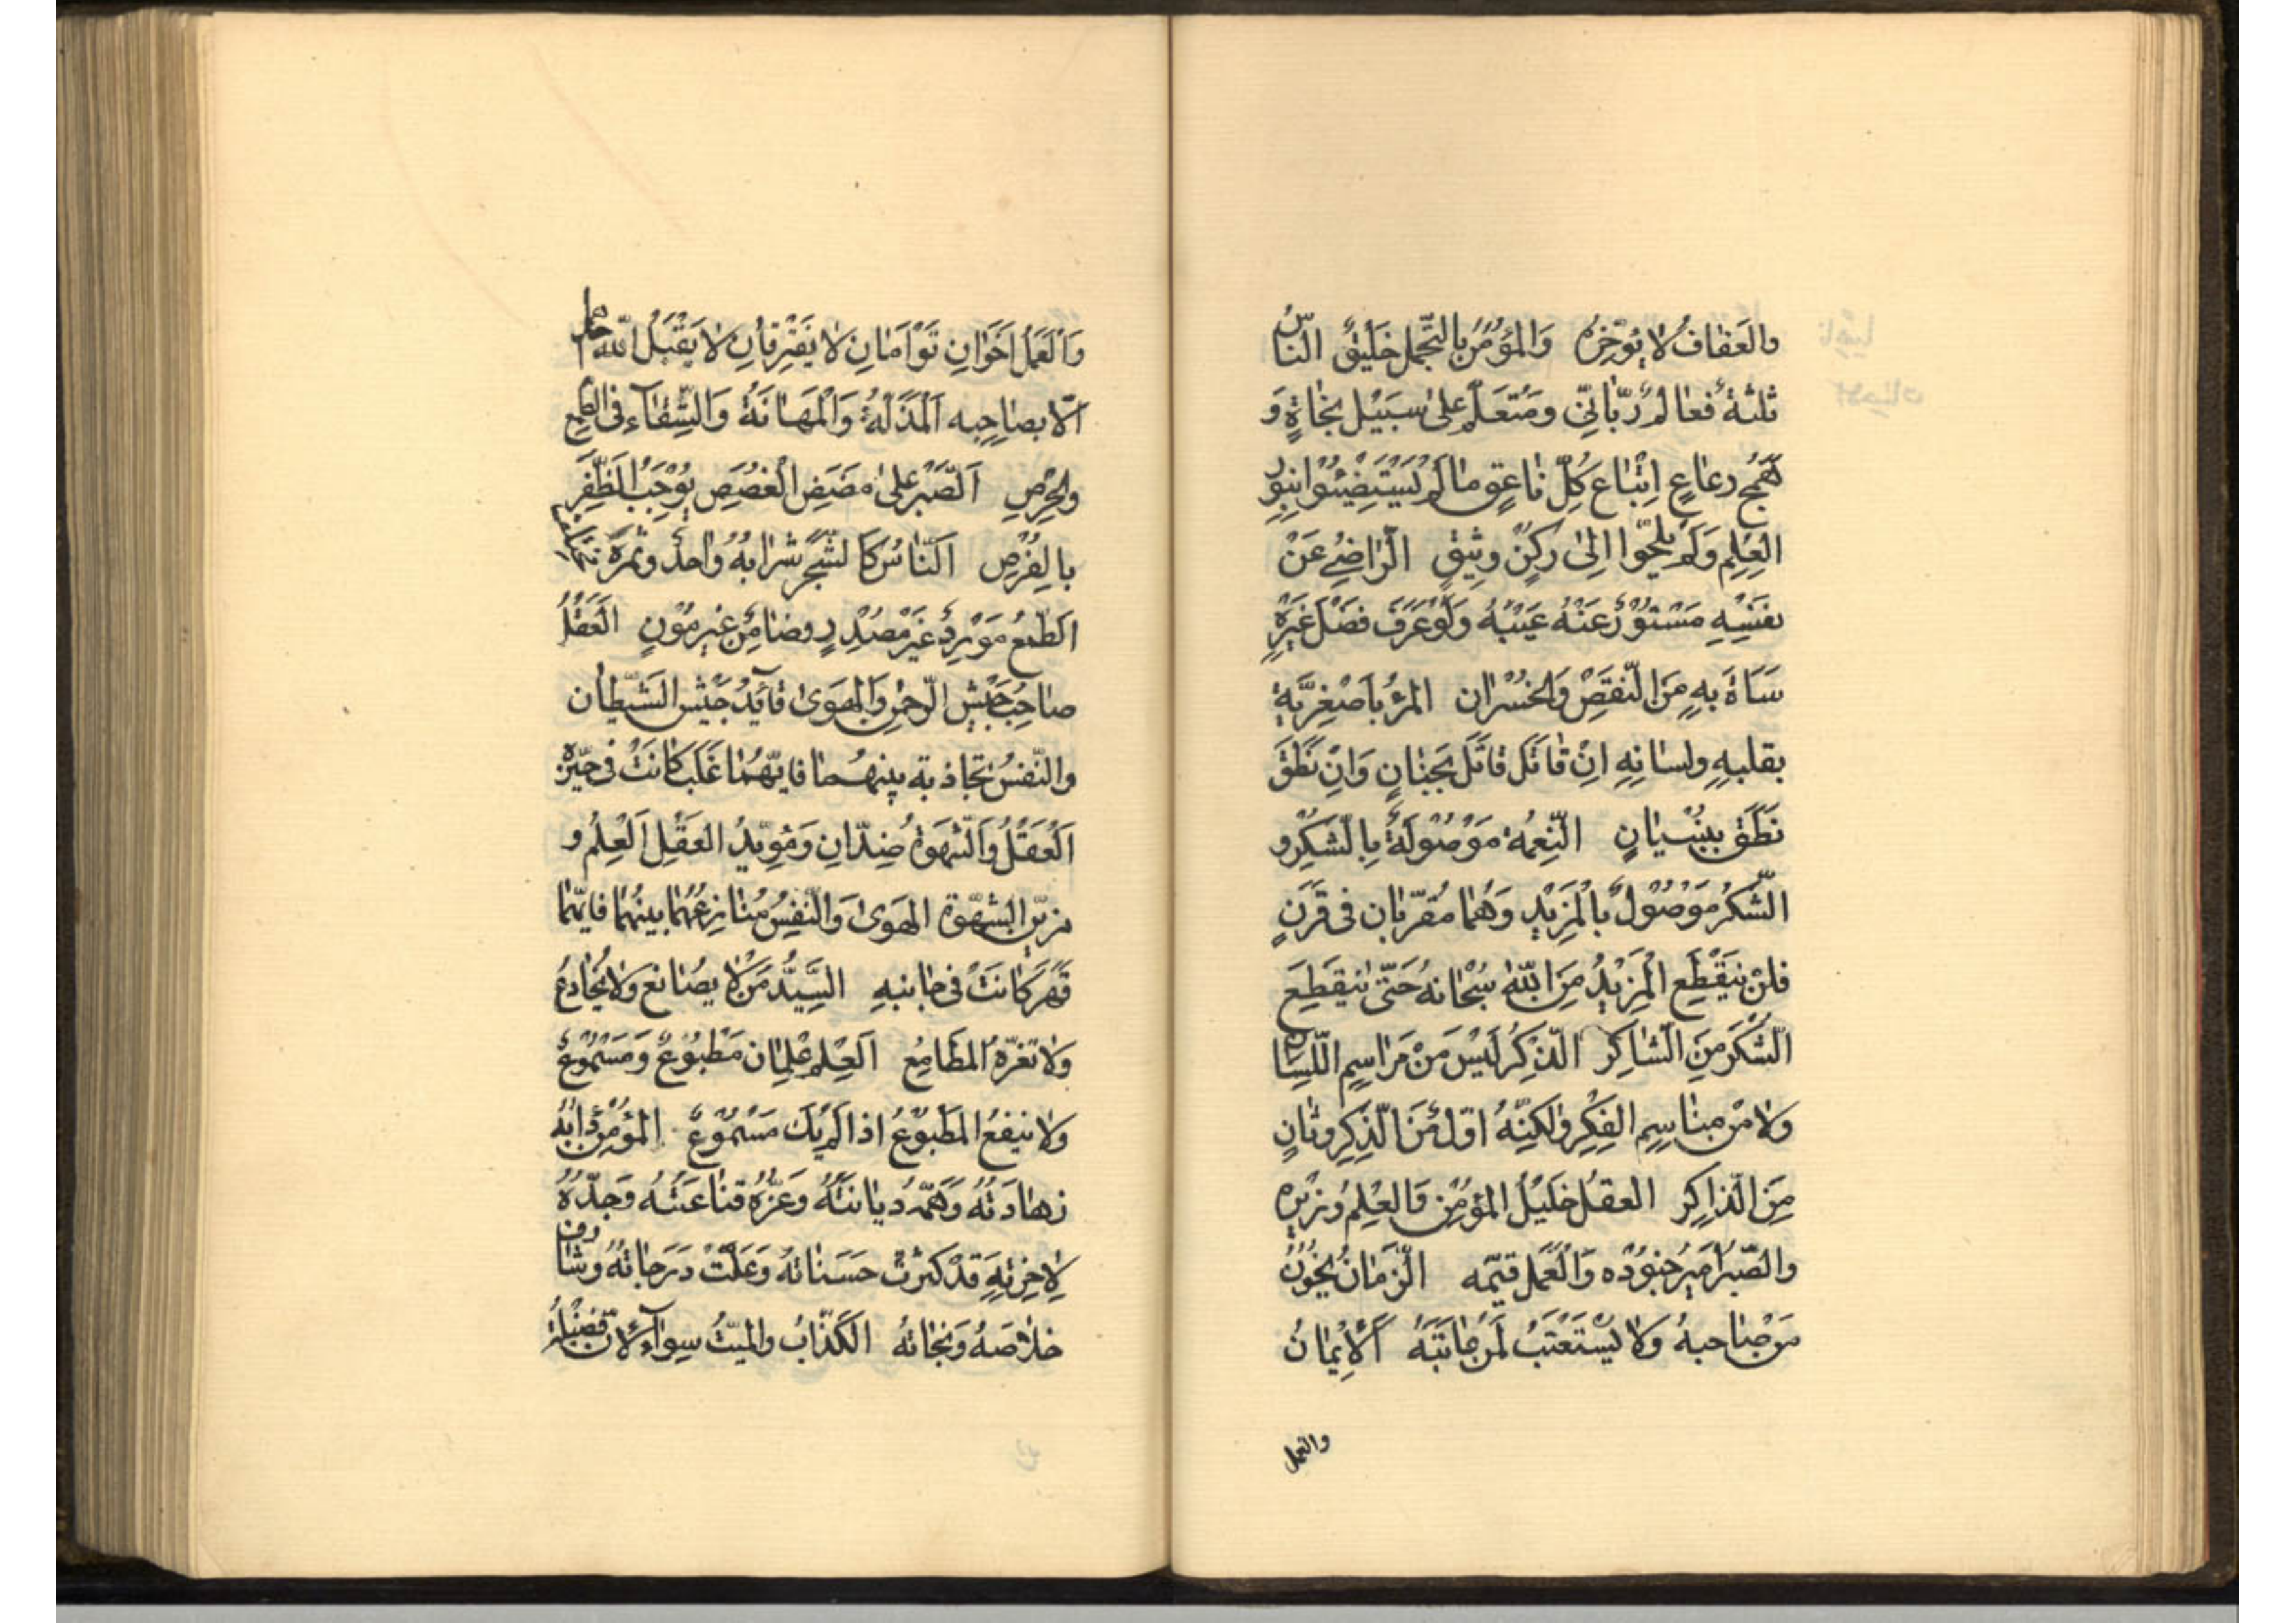 والعَفافُ لا يُؤخِّرُه وَالمُؤْمِنُ بالتَّجَمُّل خَلِيْقٌ النّاسُ
ثلثةٌ فعالِمٌ رَبّانِيّ ومُتَعَلِّمٌ على سَبِيْل نجَاةٍ وَ
هَمَجٌ رعاعٍ اِتْبَاع كُلّ نَاعِقٍ ما لَمْ يَسْتَضِيْئُوا بِنُورِ
العِلمِ وَلَم يلجَئوا اِلى رُكنٍ وثيقٍ الرّاضِي عَنْ
نفسِهِ مَسْتُوْرٌ عَنْهُ عَيْبُهُ وَلَوْ عَرَفَ فَضْلَ غَيْرِهِ
سَاءَهُ بهِ مِنَ النَّقصِ وَالخُسْران المرْءُ بأصْغَرَيْهِ
بقلبهِ ولسانِهِ اِنْ قاتَل قاتَل بجَنَانٍ وَاِنْ نَطَقَ
نَطَقَ بِبَيَانٍ النِّعمةُ مَوْصُولَةٌ بِالشُّكْرِ و
الشُّكرُ مَوْصُوْلٌ بالمَزِيْدِ وَهُما مُقرّبان فى قَرَنٍ
فلنْ يَنقَطِعَ المَزِيْدُ مِنَ اللّه سُبْحَانهُ حَتّى يَنْقَطِعَ
الشُّكرَ مِنَ الشّاكِر الذِّكرُ لَيْسَ مِنْ مَراسِمِ اللِّسَان
ولا مِنْ مناسِمِ الفِكرِ ولكِنّهُ اوّل مِنَ الذِّكرِ وثانٍ
مِنَ الذاكِرِ العقلُ خَلِيْلُ المؤمِنِ وَالعِلْمُ وزيرِه
والصّبرُ امَيرُ جنُوده وَالعَمَل قيّمه الزّمَانُ يَخُوْنُ
مَن صاحبهُ وَلا يَسْتَعْتِبُ لَمِنْ عاتبَهُ اَلْاِيْمَانُ
والعمل
وَالعَمَلُ اَخَوَانِ تَوْاَمَانِ لا يَفْتَرِقانِ لا يَقْبَلُ اللّه عمل
الّا بصاحِبِه المَذَلّةُ وَالمَهانَةُ وَالشَّقاءِ فى الطّمع
والحِرصِ اَلصَّبْرُ على مَضَضِ الغُصَصِ يُوْجِبُ الظَّفَر
بالفُرَصِ اَلنّاسُ كَالشَّجَرِ شرابهُ وَاحدٌ وثمرَة
الطّمعُ مَوْرِدٌ غَيْر مُصْدِرٍ وضامِنٌ غيرمُوْنٍ العَقْلُ
صاحِبُ جَيْشِ الرّحمن وَالهَوى قآئِدُ جَيْشِ الشَّيْطَان
والنّفسُ تجاذبة بينهُما فايّهُما غَلَب كانَتْ فى حيّزه
اَلعَقْلُ وَالشّهوَةُ ضِدّانِ وَمُويّدُ العَقْلِ العِلْمُ و
مزيّن الشّهوَة الهَوى وَالنّفسُ مُتنازِعُهُما بينهُما فايّهُما
قَهَرَ كانَتْ فى جانبهِ السَّيِّدُ مَنْ لا يصانع ولا يخادعُ
ولا تغرّهُ المطَامِعُ اَلعِلْمُ علمَان مَطْبُوْعٌ وَمَسْمُوْعٌ
ولا ينفعُ المطبوعُ اذا لم يكَ مَسْمُوْعٌ المؤمِنُ دابُهُ
زهادَتُهُ وَهَمّهُ ديانتُهُ وَعزّهُ قناعتُهُ وَجدّهُ
لِاٰخِرتِهِ قدْ كثرَتْ حَسَناتهُ وَعَلَتْ دَرَجاتهُ وشارف
خلاصَهُ وَنجاتهُ الكَذّابُ والميّتُ سِواۤء لانّ فضيلة